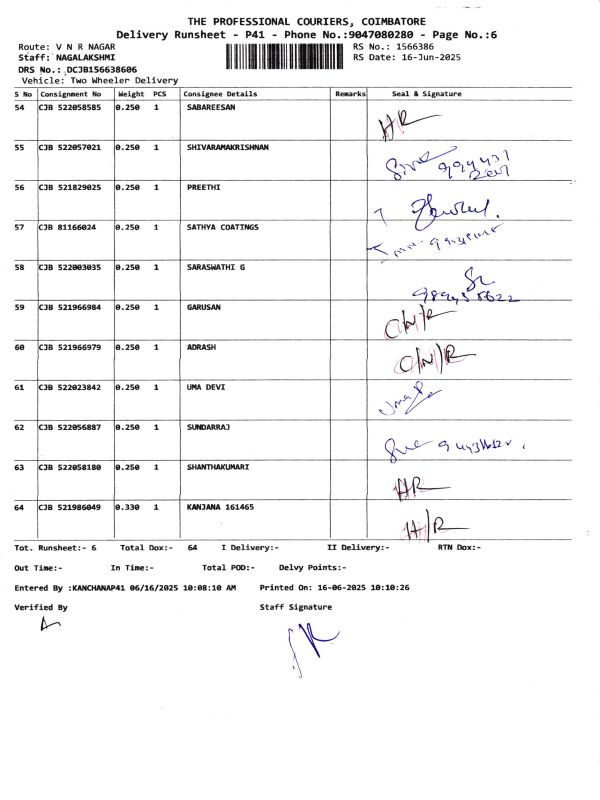 THE PROFESSIONAL COURIERS, COIMBATORE
Delivery Runsheet - P41 - Phone No.:9047080280 - Page No.:6
Route: V N R NAGAR RS No.: 1566386
Staff: NAGALAKSHMI RS Date: 16-Jun-2025
DRS No.: DCJB156638606
Vehicle: Two Wheeler Delivery
S No Consignment No Weight PCS Consignee Details Remarks Seal & Signature
54 CJB 522058585 0.250 1 SABAREESAN HR
55 CJB 522057021 0.250 1 SHIVARAMAKRISHNAN
56 CJB 521829025 0.250 1 PREETHI
57 CJB 81166024 0.250 1 SATHYA COATINGS
58 CJB 522003035 0.250 1 SARASWATHI G
59 CJB 521966984 0.250 1 GARUSAN C/N/R
60 CJB 521966979 0.250 1 ADRASH C/N/R
61 CJB 522023842 0.250 1 UMA DEVI
62 CJB 522056887 0.250 1 SUNDARRAJ
63 CJB 522058180 0.250 1 SHANTHAKUMARI HR
64 CJB 521986049 0.330 1 KANJANA 161465 H/R
Tot. Runsheet:- 6 Total Dox:- 64 I Delivery:- II Delivery:- RTN Dox:-
Out Time:- In Time:- Total POD:- Delvy Points:-
Entered By :KANCHANAP41 06/16/2025 10:08:10 AM Printed On: 16-06-2025 10:10:26
Verified By Staff Signature